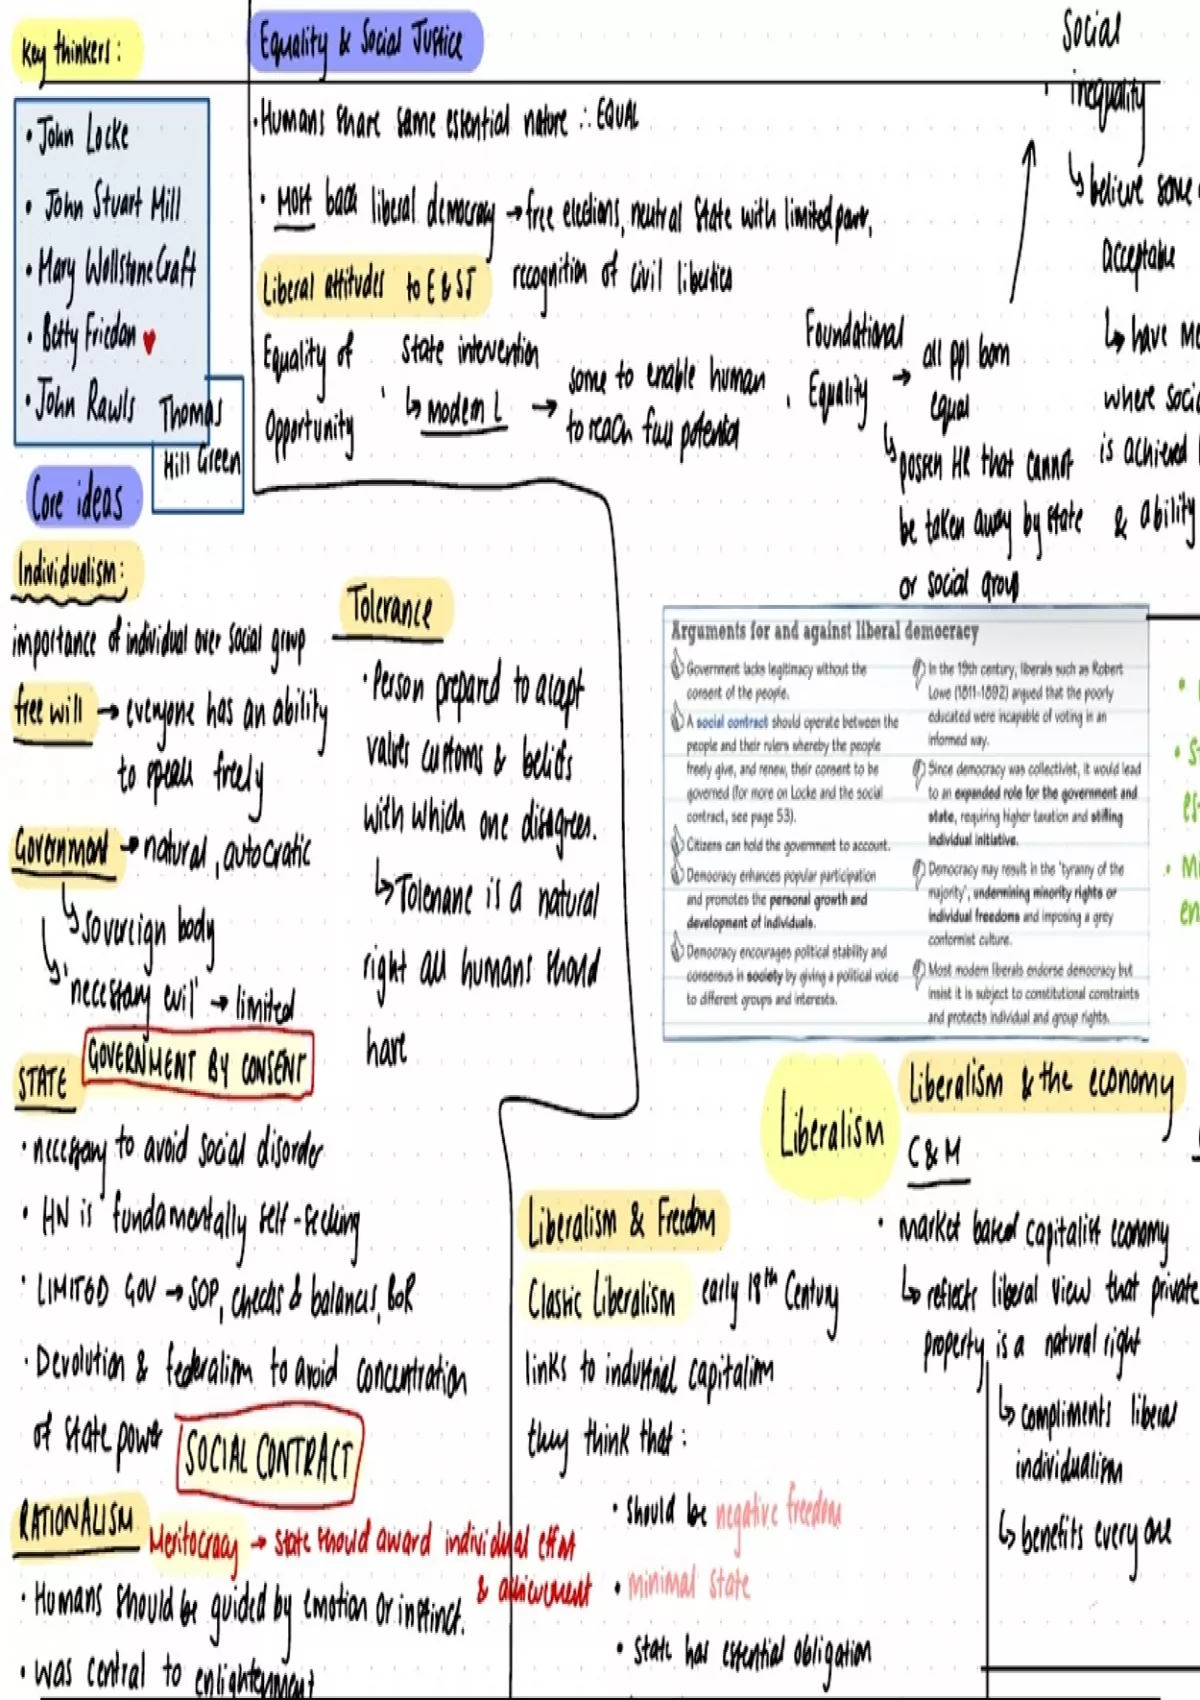 Key thinkers:
• John Locke
• John Stuart Mill
• Mary WollstoneCraft
• Betty Friedan
• John Rawls
Thomas
Hill Green
Equality & Social Justice
• Humans share same essential nature ∴ EQUAL
• Most back liberal democracy → free elections, neutral state with limited
recognition of civil liberties
Liberal attitudes to E & SJ
Equality of
Opportunity
State intervention
↳ modern L → some to enable human
to reach full potential
• Foundational
Equality → all ppl born
equal
↳ HR that cannot
be taken away by state
or social group
Social
• inequality
↳ believe some
acceptable
↳ have
where
is achieved
& ability
Core ideas
Individualism:
importance of individual over social group
free will → everyone has an ability
to speak freely
Government → natural, autocratic
↳ sovereign body
↳ 'necessary evil' → limited
GOVERNMENT BY CONSENT
STATE
• necessary to avoid social disorder
• HN is fundamentally self-seeking
• LIMITED GOV → SOP, checks & balances, BoR
• Devolution & federalism to avoid concentration
of state power
SOCIAL CONTRACT
RATIONALISM
Meritocracy → state should award individual effort
& achievement
• Humans should be guided by emotion or instinct.
• was central to enlightenment
Tolerance
• Person prepared to accept
values customs & beliefs
with which one disagrees.
↳ Tolerance is a natural
right all humans should
have
Arguments for and against liberal democracy
Government lacks legitimacy without the
consent of the people.
A social contract should operate between the
people and their rulers whereby the people
freely give, and renew, their consent to be
governed (for more on Locke and the social
contract, see page 53).
Citizens can hold the government to account.
Democracy enhances popular participation
and promotes the personal growth and
development of individuals.
Democracy encourages political stability and
consensus in society by giving a political voice
to different groups and interests.
In the 19th century, liberals such as Robert
Lowe (1811-1892) argued that the poorly
educated were incapable of voting in an
informed way.
Since democracy was collectivist, it would lead
to an expanded role for the government and
state, requiring higher taxation and stifling
individual initiative.
Democracy may result in the 'tyranny of the
majority', undermining minority rights or
individual freedoms and imposing a grey
conformist culture.
Most modern liberals endorse democracy but
insist it is subject to constitutional constraints
and protects individual and group rights.
Liberalism
Liberalism & the economy
C & M
• market based capitalist economy
↳ reflects liberal view that private
property is a natural right
↳ compliments liberal
individualism
↳ benefits everyone
Liberalism & Freedom
Classic Liberalism early 18th Century
links to industrial capitalism
they think that:
• should be negative freedom
• minimal state
• state has essential obligation